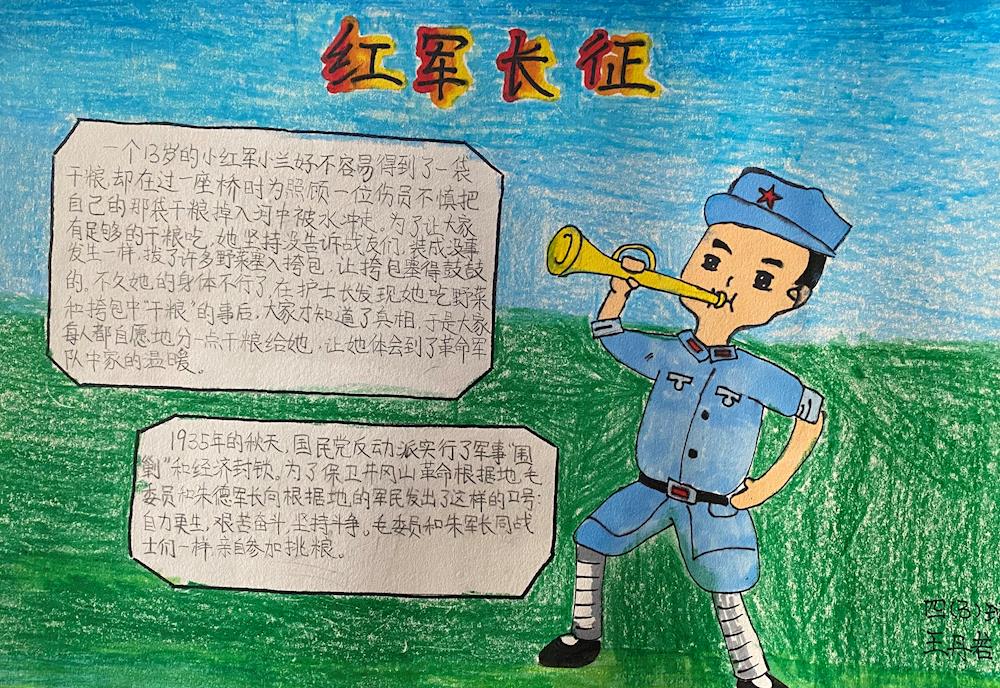 红军长征
一个13岁的小红军小兰好不容易得到了一袋
干粮,却在过一座桥时为照顾一位伤员不慎把
自己的那袋干粮掉入河中被水冲走。为了让大家
有足够的干粮吃,她坚持没告诉战友们,装成没事
发生一样,拔了许多野菜塞入挎包,让挎包塞得鼓鼓
的。不久她的身体不行了,在护士长发现她吃野菜
和挎包中“干粮”的事后,大家才知道了真相,于是大家
每人都自愿地分一点干粮给她,让她体会到了革命军
队中家的温暖。
1935年的秋天,国民党反动派实行了军事“围
剿”和经济封锁。为了保卫井冈山革命根据地,毛
委员和朱德军长向根据地的军民发出了这样的口号:
自力更生,艰苦奋斗,坚持斗争。毛委员和朱军长同战
士们一样,亲自参加挑粮。
四(3)班
王丹